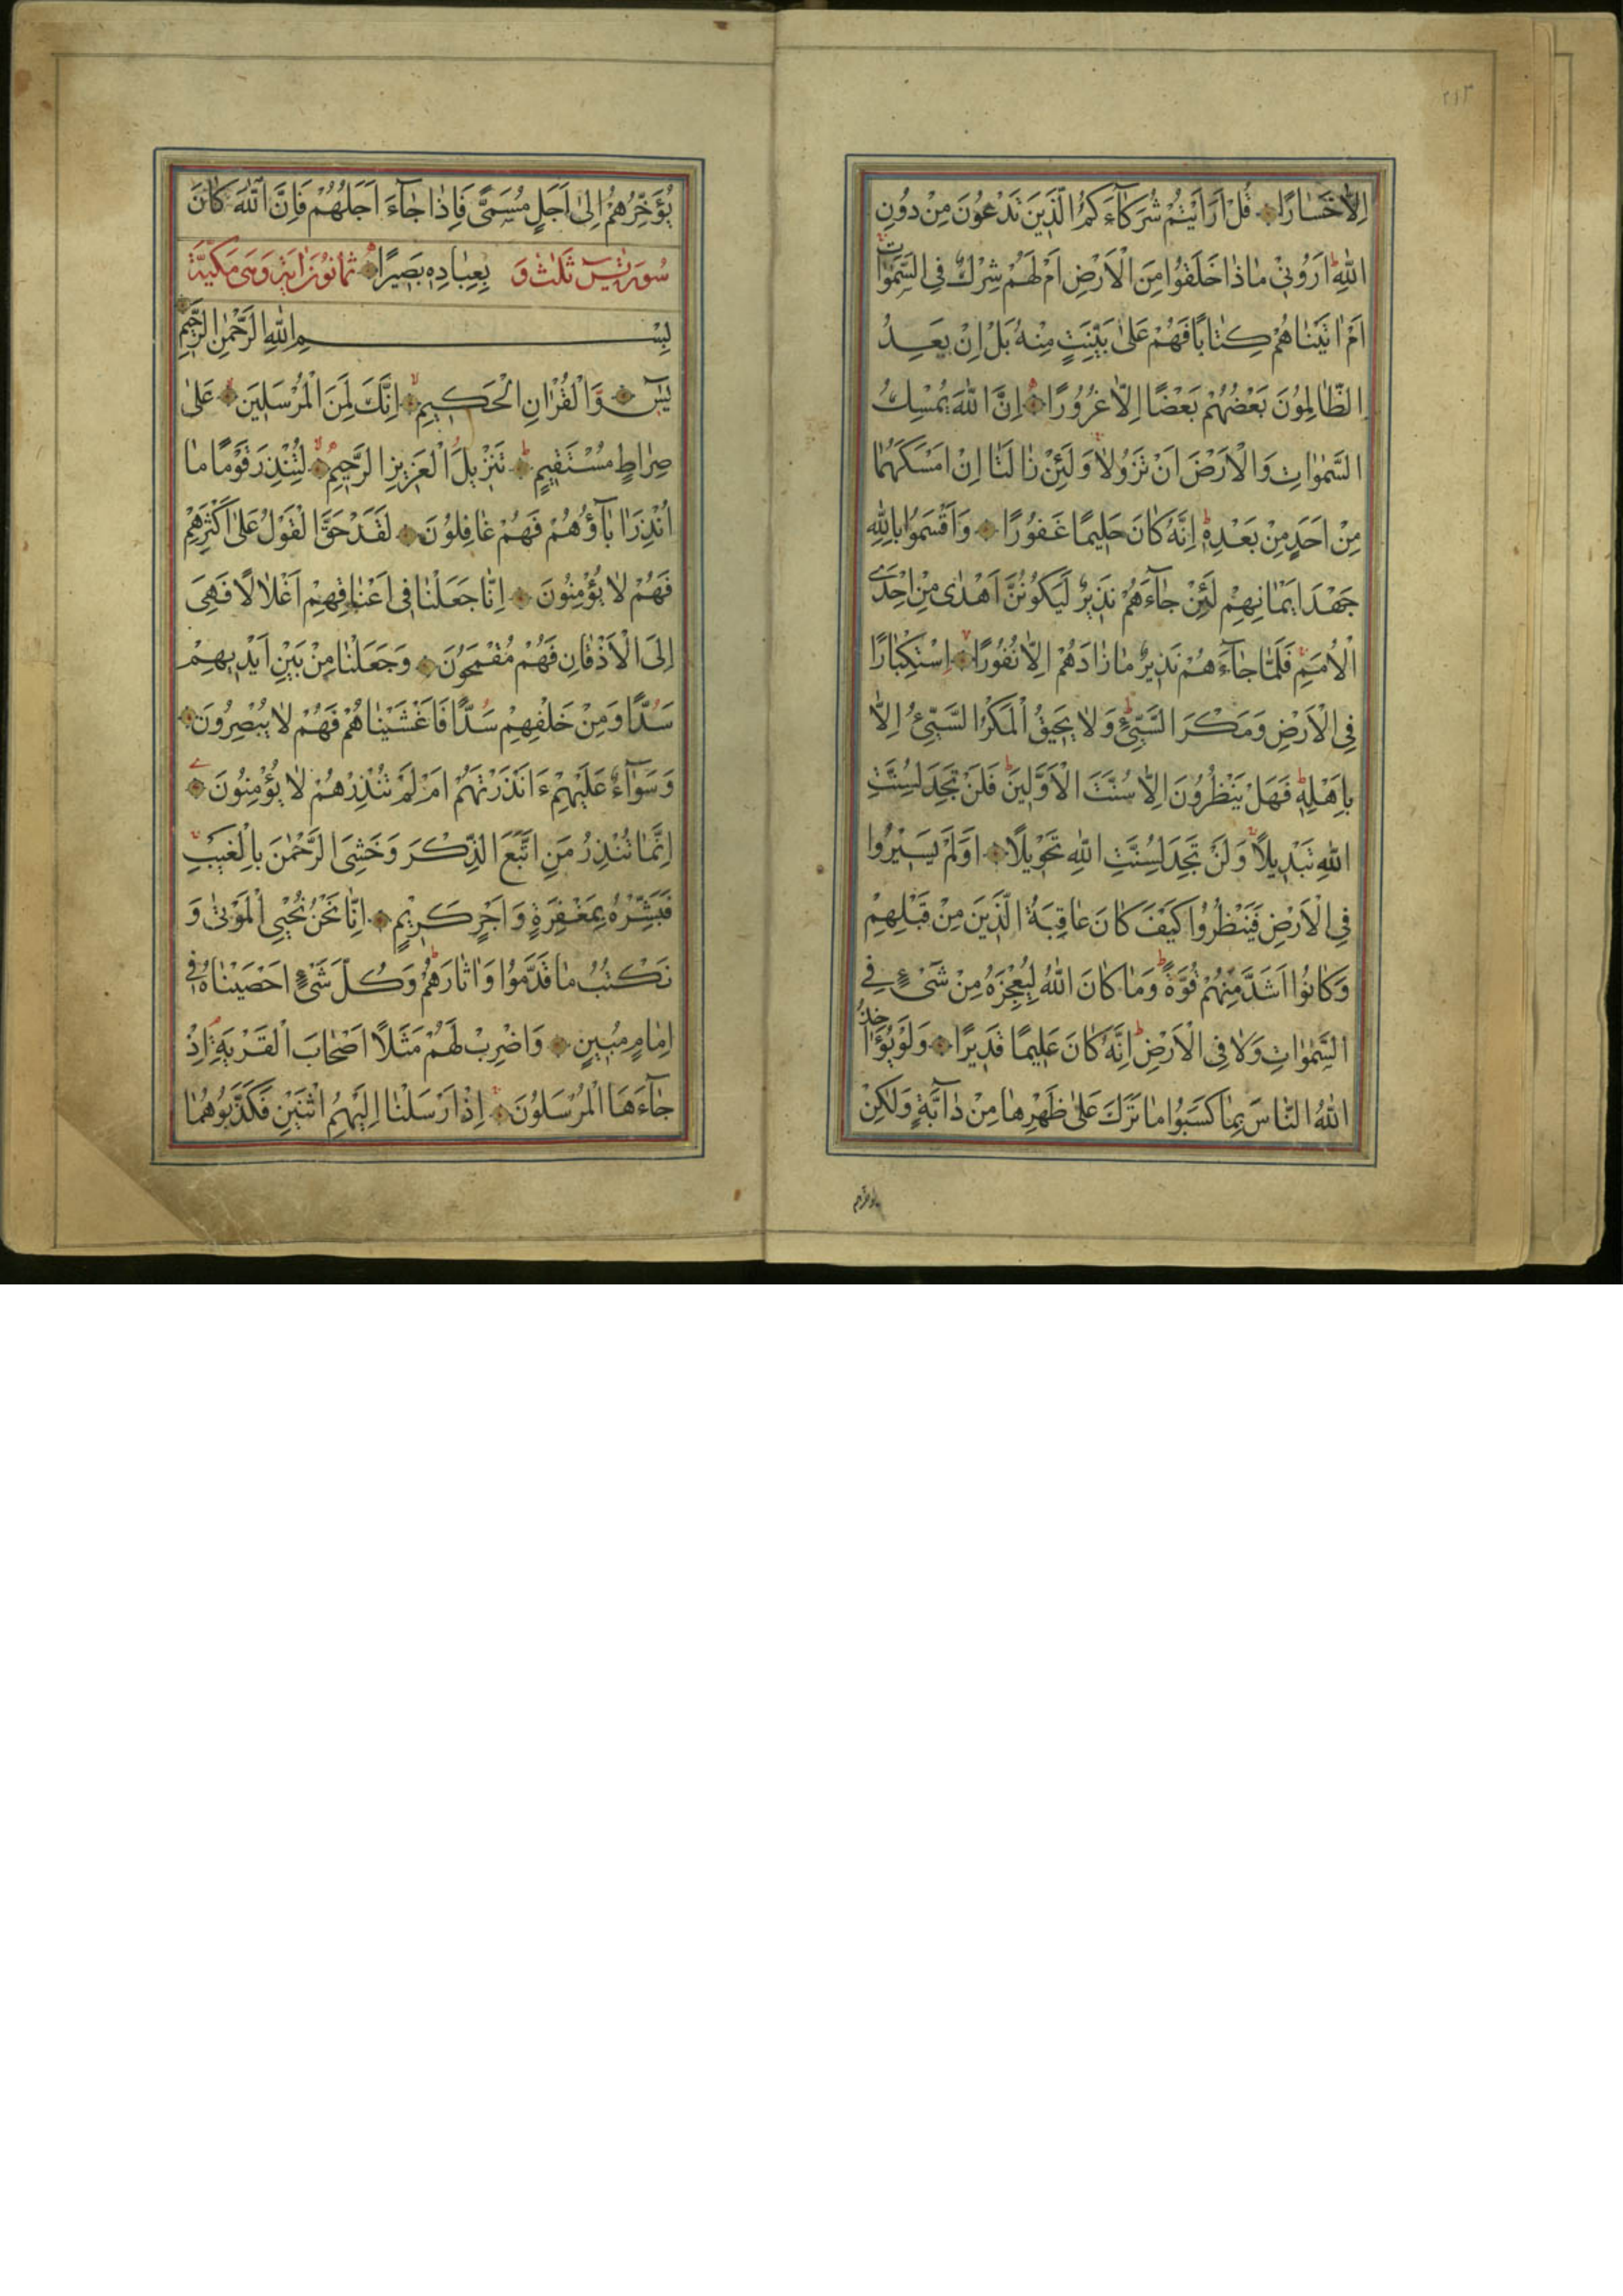 ٢١٣
اِلّا خَسٰارًا قُلْ اَرَاَيْتُمْ شُرَكٰٓاءَكُمُ الَّذِينَ تَدْعُونَ مِنْ دُونِ
اللّٰهِ اَرُونِي مٰاذٰا خَلَقُوا مِنَ الْاَرْضِ اَمْ لَهُمْ شِرْكٌ فِي السَّمٰوٰاتِ
اَمْ اٰتَيْنٰاهُمْ كِتٰابًا فَهُمْ عَلٰى بَيِّنَتٍ مِنْهُ بَلْ اِنْ يَعِدُ
الظّٰالِمُونَ بَعْضُهُمْ بَعْضًا اِلّٰا غُرُورًا اِنَّ اللّٰهَ يُمْسِكُ
السَّمٰوٰاتِ وَالْاَرْضَ اَنْ تَزُولٰا وَلَئِنْ زٰالَتٰا اِنْ اَمْسَكَهُمٰا
مِنْ اَحَدٍ مِنْ بَعْدِهِ اِنَّهُ كٰانَ حَلِيمًا غَفُورًا وَاَقْسَمُوا بِاللّٰهِ
جَهْدَ اَيْمٰانِهِمْ لَئِنْ جٰٓاءَهُمْ نَذِيرٌ لَيَكُونُنَّ اَهْدٰى مِنْ اِحْدَى
الْاُمَمِ فَلَمّٰا جٰٓاءَهُمْ نَذِيرٌ مٰا زٰادَهُمْ اِلّٰا نُفُورًا اِسْتِكْبٰارًا
فِي الْاَرْضِ وَمَكْرَ السَّيِّئِ وَلٰا يَحِيقُ الْمَكْرُ السَّيِّئُ اِلّٰا
بِاَهْلِهِ فَهَلْ يَنْظُرُونَ اِلّٰا سُنَّتَ الْاَوَّلِينَ فَلَنْ تَجِدَ لِسُنَّتِ
اللّٰهِ تَبْدِيلًا وَلَنْ تَجِدَ لِسُنَّتِ اللّٰهِ تَحْوِيلًا اَوَلَمْ يَسِيرُوا
فِي الْاَرْضِ فَيَنْظُرُوا كَيْفَ كٰانَ عٰاقِبَةُ الَّذِينَ مِنْ قَبْلِهِمْ
وَكٰانُوا اَشَدَّ مِنْهُمْ قُوَّةً وَمٰا كٰانَ اللّٰهُ لِيُعْجِزَهُ مِنْ شَيْءٍ فِي
السَّمٰوٰاتِ وَلٰا فِي الْاَرْضِ اِنَّهُ كٰانَ عَلِيمًا قَدِيرًا وَلَوْ يُؤٰاخِذُ
اللّٰهُ النّٰاسَ بِمٰا كَسَبُوا مٰا تَرَكَ عَلٰى ظَهْرِهٰا مِنْ دٰٓابَّةٍ وَلٰكِنْ
يُؤَخِّرُهُمْ اِلٰى اَجَلٍ مُسَمًّى فَاِذٰا جٰٓاءَ اَجَلُهُمْ فَاِنَّ اللّٰهَ كٰانَ
سُورة يٰسٓ ثَلٰثٌ وَ بِعِبٰادِهِ بَصِيرًا ثمانون اية وهى مَكِيَّة
بِسْمِ اللّٰهِ الرَّحْمٰنِ الرَّحِيمِ
يٰسٓ وَالْقُرْاٰنِ الْحَكِيمِ اِنَّكَ لَمِنَ الْمُرْسَلِينَ عَلٰى
صِرٰاطٍ مُسْتَقِيمٍ تَنْزِيلَ الْعَزِيزِ الرَّحِيمِ لِتُنْذِرَ قَوْمًا مٰا
اُنْذِرَ اٰبٰٓاؤُهُمْ فَهُمْ غٰافِلُونَ لَقَدْ حَقَّ الْقَوْلُ عَلٰى اَكْثَرِهِمْ
فَهُمْ لٰا يُؤْمِنُونَ اِنّٰا جَعَلْنٰا فِي اَعْنٰاقِهِمْ اَغْلٰالًا فَهِيَ
اِلَى الْاَذْقٰانِ فَهُمْ مُقْمَحُونَ وَجَعَلْنٰا مِنْ بَيْنِ اَيْدِيهِمْ
سَدًّا وَمِنْ خَلْفِهِمْ سَدًّا فَاَغْشَيْنٰاهُمْ فَهُمْ لٰا يُبْصِرُونَ
وَسَوٰٓاءٌ عَلَيْهِمْ ءَاَنْذَرْتَهُمْ اَمْ لَمْ تُنْذِرْهُمْ لٰا يُؤْمِنُونَ
اِنَّمٰا تُنْذِرُ مَنِ اتَّبَعَ الذِّكْرَ وَخَشِيَ الرَّحْمٰنَ بِالْغَيْبِ
فَبَشِّرْهُ بِمَغْفِرَةٍ وَاَجْرٍ كَرِيمٍ اِنّٰا نَحْنُ نُحْيِي الْمَوْتٰى وَ
نَكْتُبُ مٰا قَدَّمُوا وَاٰثٰارَهُمْ وَكُلَّ شَيْءٍ اَحْصَيْنٰاهُ فِي
اِمٰامٍ مُبِينٍ وَاضْرِبْ لَهُمْ مَثَلًا اَصْحٰابَ الْقَرْيَةِ اِذْ
جٰٓاءَهَا الْمُرْسَلُونَ اِذْ اَرْسَلْنٰا اِلَيْهِمُ اثْنَيْنِ فَكَذَّبُوهُمٰا